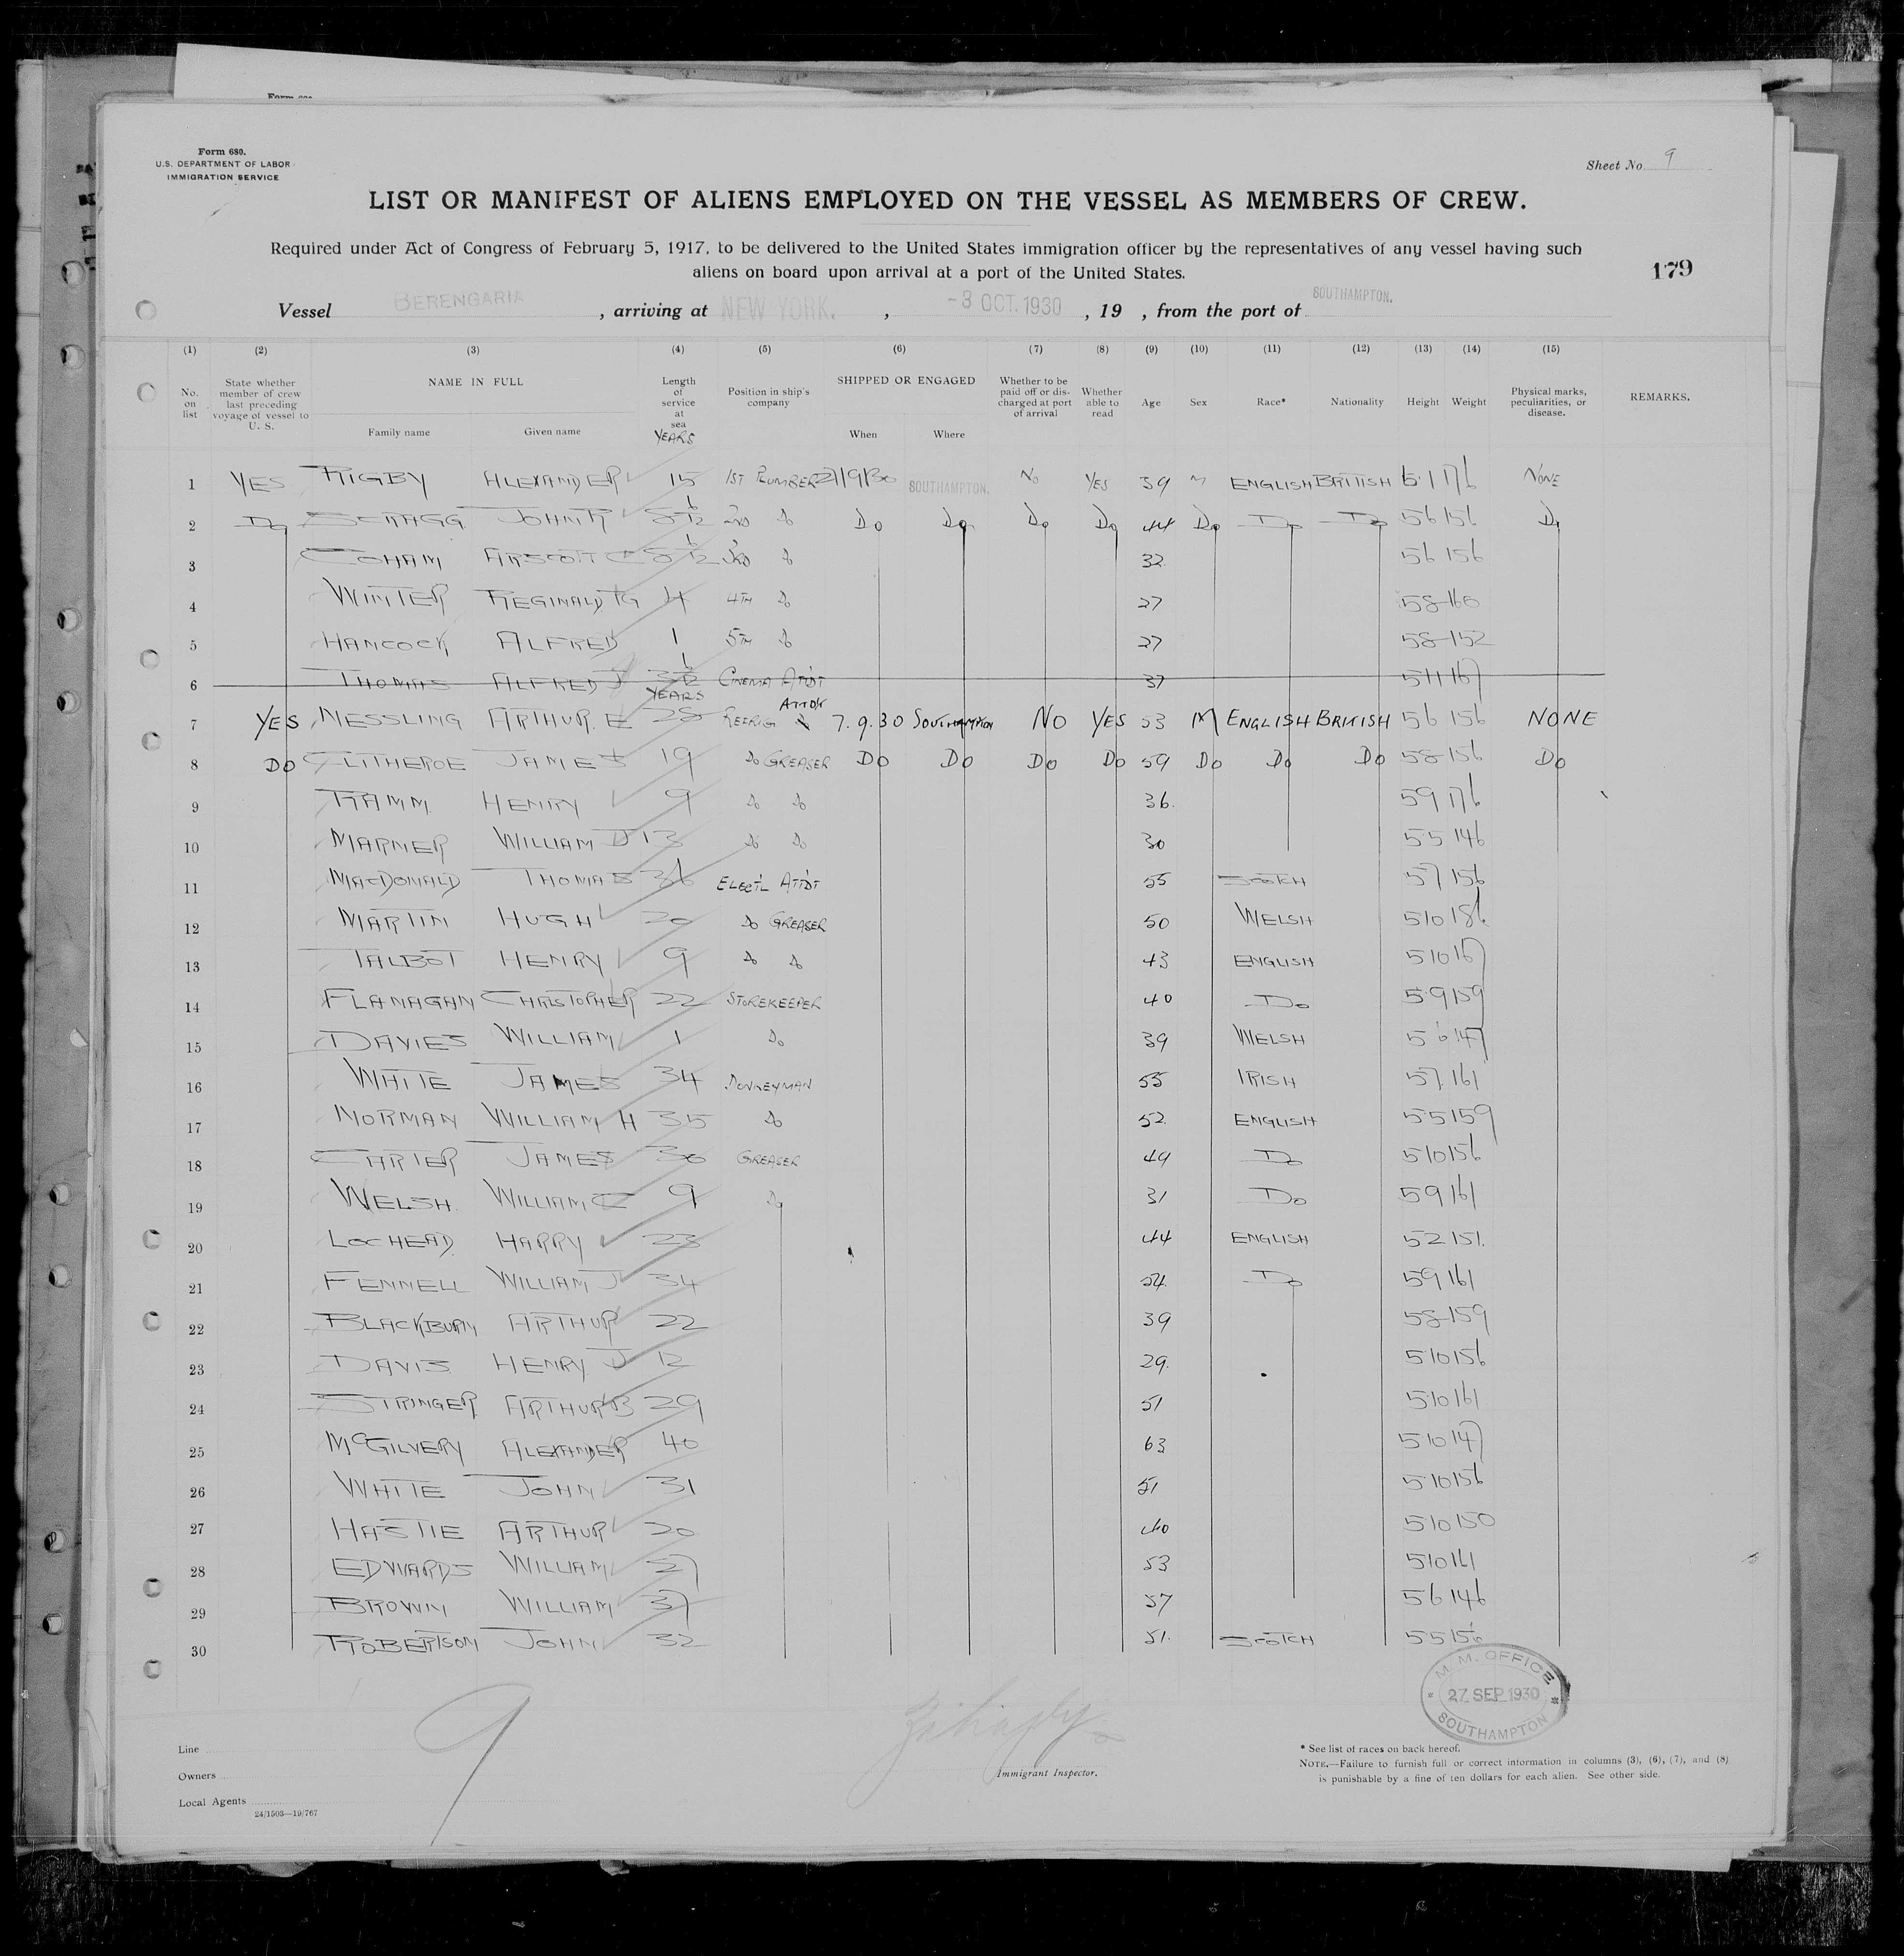 Form 680.
U.S. DEPARTMENT OF LABOR
IMMIGRATION SERVICE
Sheet No. 9
LIST OR MANIFEST OF ALIENS EMPLOYED ON THE VESSEL AS MEMBERS OF CREW.
Required under Act of Congress of February 5, 1917, to be delivered to the United States immigration officer by the representatives of any vessel having such
aliens on board upon arrival at a port of the United States.
179
Vessel BERENGARIA, arriving at NEW YORK., -3 OCT. 1930, 19 , from the port of SOUTHAMPTON.
(1) (2) (3) (4) (5) (6) (7) (8) (9) (10) (11) (12) (13) (14) (15)
No. on list State whether member of crew last preceding voyage of vessel to U. S. NAME IN FULL Family name Given name Length of service at sea YEARS Position in ship's company SHIPPED OR ENGAGED When Where Whether to be paid off or discharged at port of arrival Whether able to read Age Sex Race* Nationality Height Weight Physical marks, peculiarities, or disease. REMARKS.
1 YES RIGBY ALEXANDER 15 1ST PLUMBER SOUTHAMPTON. NO YES 39 M ENGLISH BRITISH 176 NONE
2 Do SCRAGG JOHN R 2ND Do Do Do Do Do 44 Do Do Do 56 156 Do
3 COHAM ARSCOTT C Do 32 56 156
4 WINTER REGINALD G 4 4TH Do 27 58 166
5 HANCOCK ALFRED 1 5TH Do 27 58 152
6 THOMAS ALFRED J CINEMA ATTDT 37 511 167
7 YES MESSLING ARTHUR. E YEARS 28 REFRIG ATTDT 7.9.30 SOUTHAMPTON NO YES 53 M ENGLISH BRITISH 56 156 NONE
8 DO CLITHEROE JAMES 19 Do GREASER Do Do Do Do 59 Do Do Do 58 156 Do
9 HAMM. HENRY 9 Do Do 36. 59 176
10 MARNER WILLIAM J 13 Do Do 30 55 146
11 MACDONALD THOMAS 36 ELECT'L ATTDT 55 SCOTCH 57 156
12 MARTIN HUGH 20 Do GREASER 50 WELSH 510 186
13 TALBOT HENRY 9 Do Do 43 ENGLISH 510 167
14 FLANAGAN CHRISTOPHER 22 STOREKEEPER 40 Do 59 159
15 DAVIES WILLIAM 1 Do 39 WELSH 56 147
16 WHITE JAMES 34 DONKEYMAN 55 IRISH 57. 161
17 NORMAN WILLIAM H 35 Do 52 ENGLISH 55 159
18 CARTER JAMES 30 GREASER 49 Do 510 156
19 WELSH. WILLIAM C 9 Do 31 Do 59 161
20 LOCHEAD HARRY 23 44 ENGLISH 52 151.
21 FENNELL WILLIAM J 34 54. Do 59 161
22 BLACKBURN ARTHUR 22 39 58 159
23 DAVIS HENRY. J 12 29. 510 156
24 STRINGER ARTHUR B 29 51 510 161
25 McGILVERY ALEXANDER 40 63 510 147
26 WHITE JOHN 31 51 510 156
27 HASTIE ARTHUR 20 40 510 150
28 EDWARDS WILLIAM 53 510 161
29 BROWN WILLIAM 37 57 56 146
30 ROBERTSON JOHN 32 51. SCOTCH 55 156
M. M. OFFICE
27 SEP 1930
SOUTHAMPTON
9
Line
Owners
Local Agents
24/1503—19/767
Immigrant Inspector.
* See list of races on back hereof.
NOTE.—Failure to furnish full or correct information in columns (3), (6), (7), and (8)
is punishable by a fine of ten dollars for each alien. See other side.